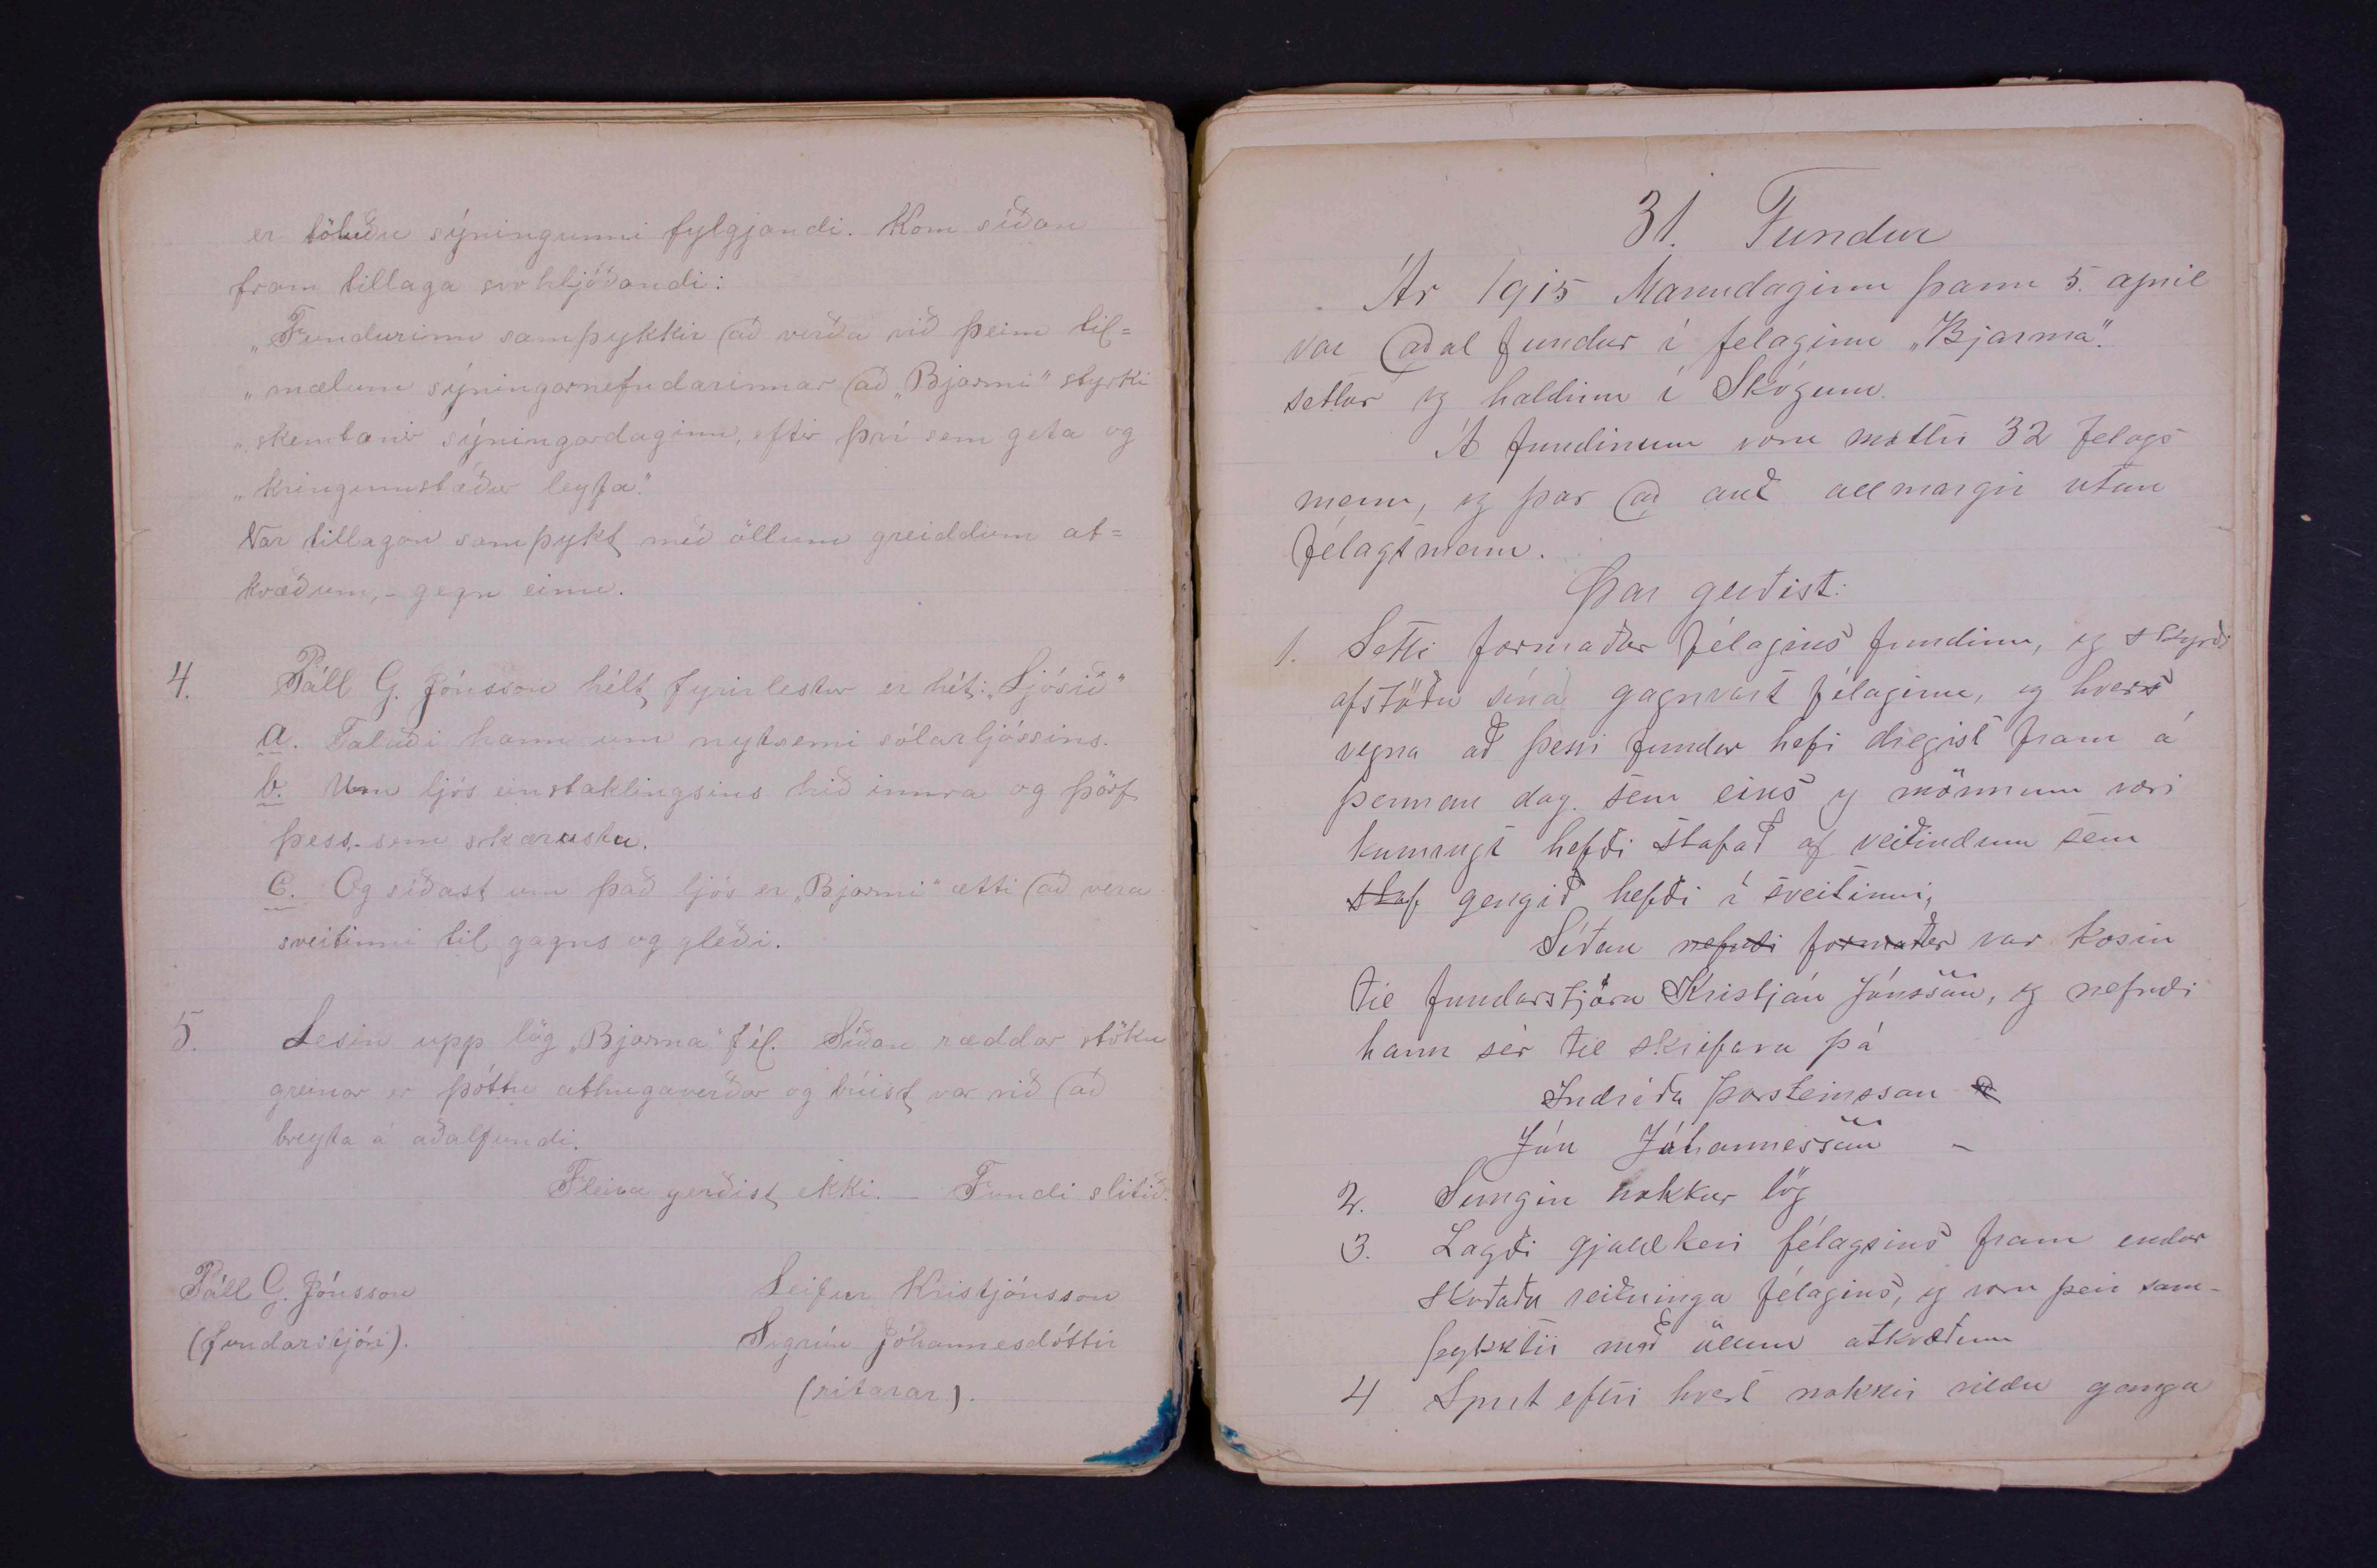 er töluðu sýningunni fylgjandi. Kom síðan
fram tillaga svohljóðandi:
„Fundurinn samþykkir að verða við þeim til=
„mælum sýningarnefndarinnar að „Bjarmi" styrki
„skemtanir sýningardaginn, eftir því sem geta og
„kringumstæður leyfa."
Var tillagan samþykt með öllum greiddum at=
kvæðum, - gegn einu.
4. Páll G. Jónsson hélt fyrirlestur er hét: „Ljósið"
a. Talaði hann um nytsemi sólarljóssins.
b. Um ljós einstaklingsins hið innra og þörf
þess, sem skærustu.
c. Og síðast um það ljós er „Bjarmi" ætti að vera
sveitinni til gagns og gleði.
5. Lesin upp lög „Bjarma" fél. Síðan ræddar stöku
greinar er þóttu athugaverðar og búist var við að
breyta á aðalfundi.
Fleira gerðist ekki. - Fundi slitið.
Páll G. Jónsson
(fundarstjóri).
Leifur Kristjánsson
Sigrún Jóhannesdóttir
(ritarar).
31. Fundur
Ár 1915 Manudaginn þann 5. april
var aðal fundur í felaginu „Bjarma".
settur og haldinn í Skógum.
Á fundinum voru mættir 32 felags
menn, og þar að auk allmargir utan
félagsmenn.
Þar gerðist:
1. Setti formaður félagins fundinn, og skyrði
afstöðu sína gagnvart félaginu, og hvers
vegna að þessi fundur hefi dregist fram á
þennan dag. sem eins og mönnum væri
kunnugt hefði stafað af veikindum sem
staf gengið hefði í sveitinni,
Síðan nefndi formaður var kosin
til fundarstjóra Kristján Jónsson, og nefndi
hann sér til skrifara þá
Indriða Þorsteinsson
Jón Jóhannesson -
2. Sungin nokkur lög
3. Lagði gjaldkeri félagsins fram endur
skoðaða reikninga félagins, og voru þeir sam-
þykktir með öllum atkvæðum
4 Spurt eftir hvert nokkir vildu ganga